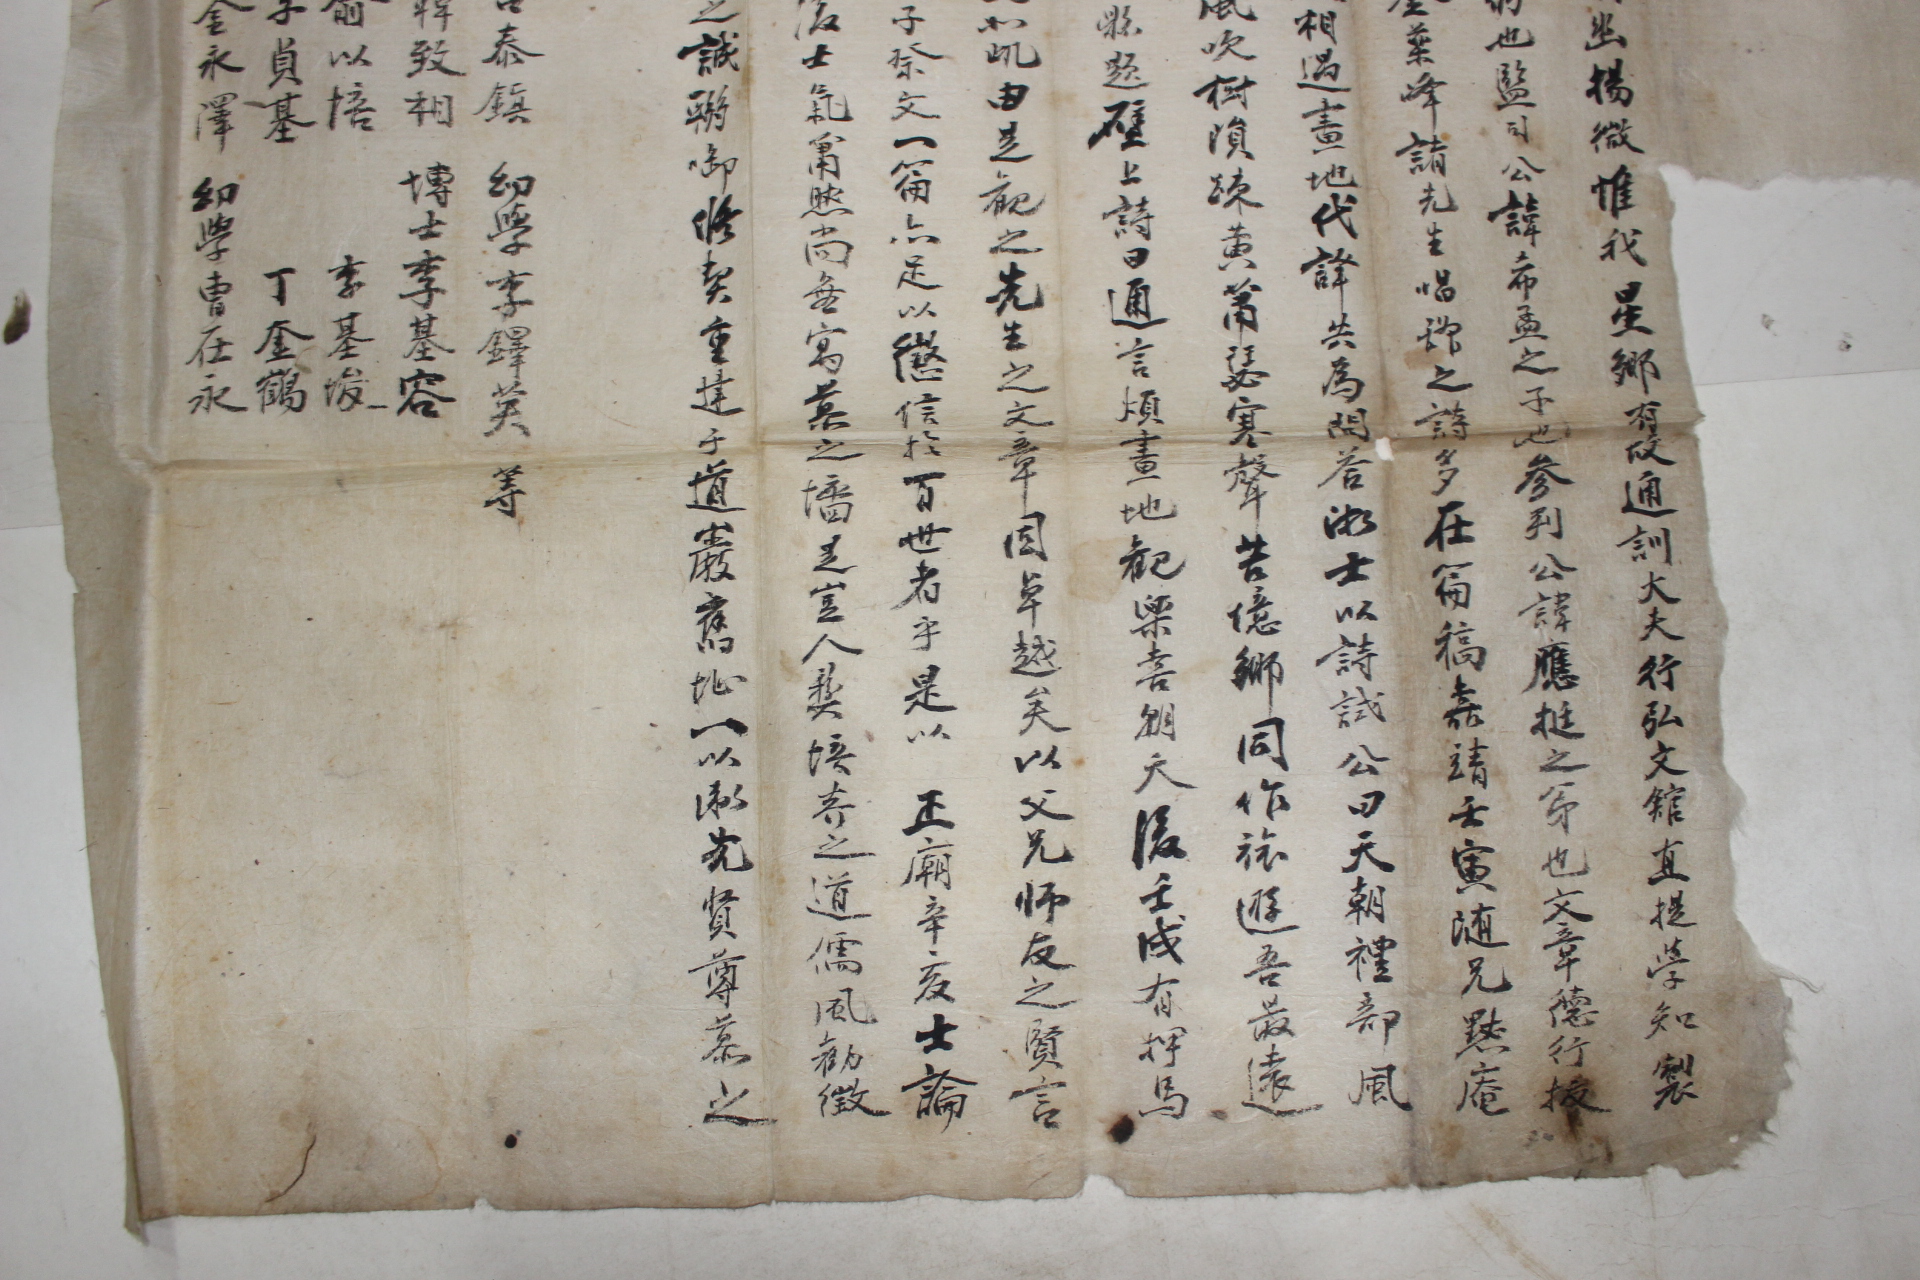 幽揚微惟我星鄉有故通訓大夫行弘文館直提學知製
也監司公諱希孟之子也參判公諱應挺之弟也文章德行授
葉峰諸先生唱酬之詩多在篇稿嘉靖壬寅随兄黙庵
相過畫地代譯共爲問答浙士以詩試公曰天朝禮部風
風吹樹順疎黄葉瑟寒聲苦憶鄉同作旅遊吾最遠
縣題壁上詩曰通言煩畫地觀樂喜朝天後壬戌有押馬
如此由是觀之先生之文章固卓越矣以父兄師友之賢言
子祭文一篇亦足以徵信於百世者乎是以 正廟辛亥士論
後士氣蕭然尚無寓慕之墻是豈人獎培養之道儒風勸徵
之誠聯御修契重建于道巖舊址一以淑先賢尊慕之
泰鎭 幼學李鐸英等
韓致相 博士李基容
俞以培 李基埈
貞基 丁奎鶴
金永澤 幼學曺在永